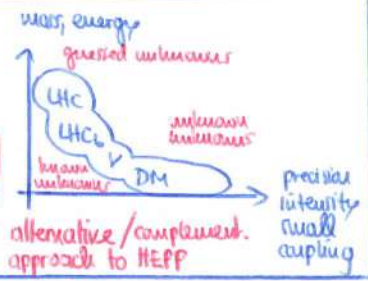 mass, energy
guessed unknowns
LHC
LHCb
unknown
unknowns
ν
known
unknowns
DM
precision
intensity
small
coupling
alternative/complement.
approach to HEPP